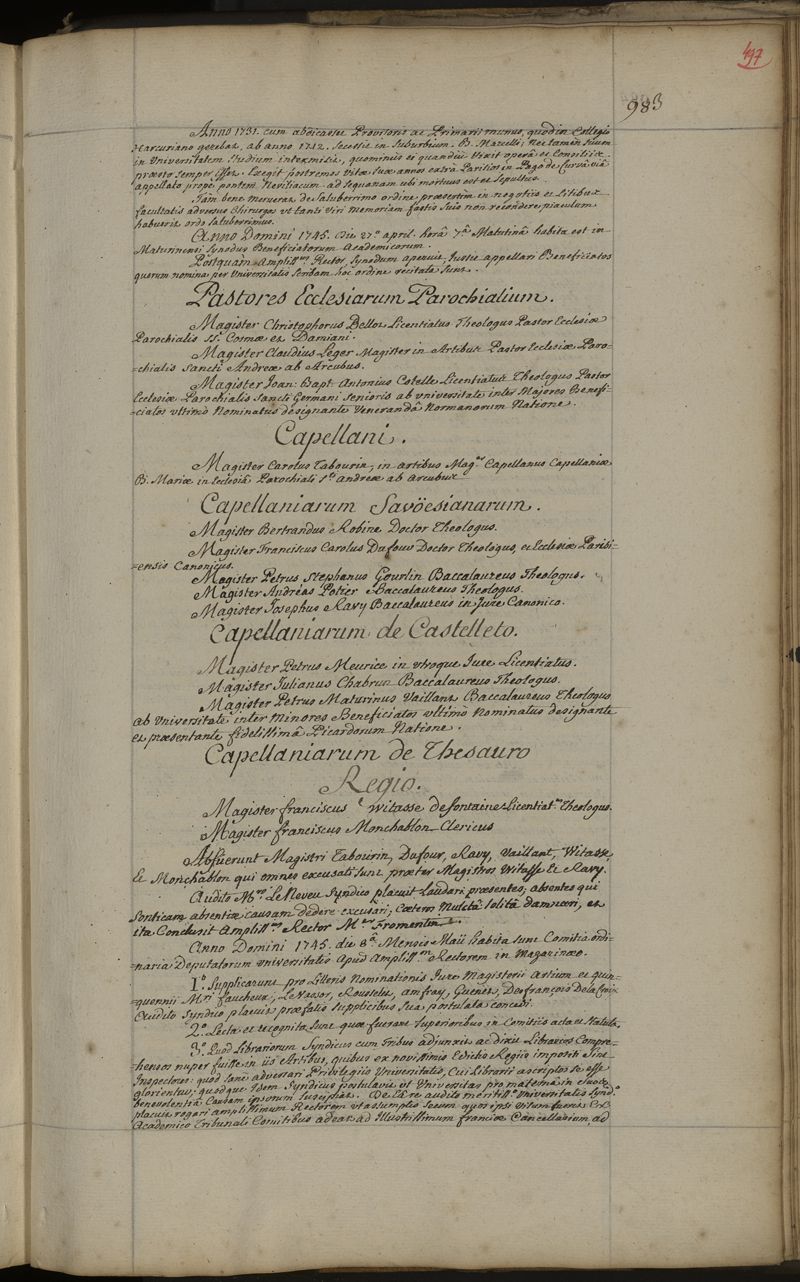 497
983
Anno 1731. cum abdicasset Provisoris ac Primarii munus, quod in Collegio
Harcuriano gerebat, ab anno 1712. Secessit in Suburbium B. Marcelli; nec tamen suum
in Universitatem Studium intermisit, quominus ei quandiu vixit operâ et Consiliis
præsto semper esset. Exegit postremos vitæ suæ annos extra Parisios in Pago de Curva viâ
appellato prope pontem Nevillacum ad Sequanam ubi mortuus est et Sepultus.
Tam bene meruerat de Saluberrimo ordine præsertim in negotiis et Litibus
facultatis adversus Chirurgos ut tanti viri Memoriam fastis Suis non recondere piaculum
habuerit ordo Saluberrimus.
Anno Domini 1745. die 27.ª april. horâ 7.ª Matutinâ habita est in
Maturinensi Synodus Beneficiatorum Academicorum.
Postquam Ampliss.mus Rector Synodum aperuit, Jussit appellari Beneficiatos
quorum nomina per Universitatis Scribam hoc ordine recitata sunt.
Pastores Ecclesiarum Parochialium.
Magister Christophorus Bellot Licentiatus Theologus Pastor Ecclesiæ
Parochialis SS. Cosmæ et Damiani.
Magister Claudius Leger Magister in Artibus Pastor Ecclesiæ Paro-
=chialis Sancti Andreæ ab Arcubus.
Magister Joan: Bapt: Antonius Cotelle Licentiatus Theologus Pastor
Ecclesiæ Parochialis Sancti Germani Senioris ab Universitate inter Majores Benefi-
=ciatos ultimò Nominatus designante Venerandâ Normanorum Natione.
Capellani.
Magister Carolus Tabourin, in artibus Mag.er Capellanus Capellaniæ
B. Mariæ in Ecclesiâ Parochiali S.ti Andreæ ab Arcubus
Capellaniarum Savöesianarum.
Magister Bertrandus Robine Doctor Theologus.
Magister Franciscus Carolus Dufour Doctor Theologus, et Ecclesiæ Parisi-
=ensis Canonicus.
Magister Petrus Stephanus Gourlin Baccalaureus Theologus.
Magister Andréas Potier Baccalaureus Theologus.
Magister Josephus Ravy Baccalaureus in Jure Canonico.
Capellaniarum de Castelleto.
Magister Petrus Meurice in utroque Jure Licentiatus.
Magister Julianus Chabrun Baccalaureus Theologus.
Magister Petrus Maturinus Vaillant Baccalaureus Theologus
ab Universitate inter Minores Beneficiatos ultimò Nominatus designante
et præsentante fidelissimâ Picardorum Natione.
Capellaniarum de Thesauro
Regio.
Magister franciscus Witasse defontaine Licentiat.us Theologus.
Magister franciscus Monchablon Clericus
Abfuerunt Magistri Tabourin, Dufour, Ravy, Vaillant, Witasse,
Et Monchablon qui omnes excusati sunt præter Magistros Witasse Et Ravy.
Audito M.ro LeNeveu Syndico placuit Laudari præsentes; absentes qui
Sonticam absentiæ causam dedere excusari; Cæteros Mulctâ Solitâ damnari, et
ita Conclusit Ampliss.mus Rector M.er Fromentin.
Anno Domini 1745. die 8.â Mensis Maii habita sunt Comitia ordi-
=naria Deputatorum Universitatis Apud Ampliss.m Rectorem in Mazarinæo.
1.º Supplicarunt pro Litteris Nominationis Jure Magisterii Artium et quin-
quennii M.ri faucheux, LeVasor, Roustelet, amfray, Guenet, Desfrançois DelaCroix
Audito Syndico placuit præfatis Supplicibus Sua postulata concedi.
2.º Lecta et recognita sunt quæ fuerant Superioribus in Comitiis acta et Statuta.
3.º Quod Librariorum Syndicus cum tribus adjunxis ac dixit Librarios Compre-
hensos nuper fuisse in iis Artibus, quibus ex novissimis Edictis Regiis impositi Sint
Inspectores: quod sanè adversari Privilegiis Universitatis, Cui Librarii ascriptos se esse
glorientur; quodque Idem Syndicus postulavit ut Universitas pro maternâ in Suos
benevolentiâ Causam ipsorum susciperet. De Eâ re audito meritiss.º Universitatis Synd.º
placuit rogari amplissimum Rectorem ut assumptis Secum quos ipsi visum fuerit Ex
Academico Tribunali Comitibus adeat ad Illustrissimum franciæ Cancellarium, ad